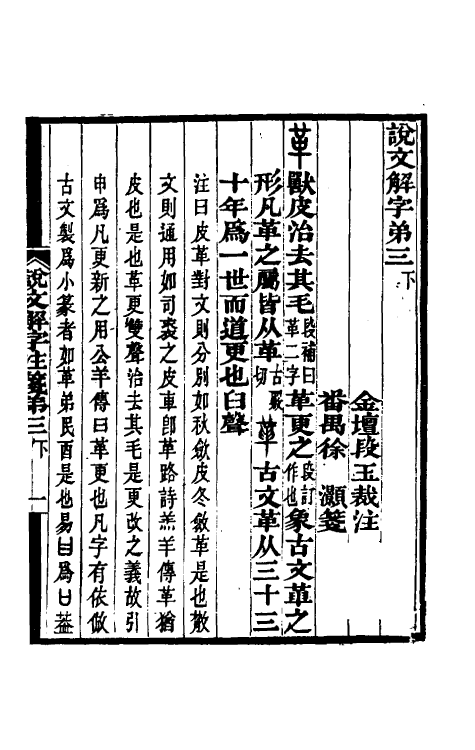 說文解字弟三下
金壇段玉裁注
番禺徐灝箋
革獸皮治去其毛段補曰革二字革更之段訂作也象古文革之
形凡革之屬皆从革古覈切革古文革从三十三
十年爲一世而道更也臼聲
注曰皮革對文則分別如秋斂皮冬斂革是也散
文則通用如司裘之皮車卽革路詩羔羊傳革猶
皮也是也革更雙聲治去其毛是更改之義故引
申爲凡更新之用公羊傳曰革更也凡字有依倣
古文製爲小篆者如革弟民酉是也易𦥑爲臼葢
說文解字注箋第三下
一